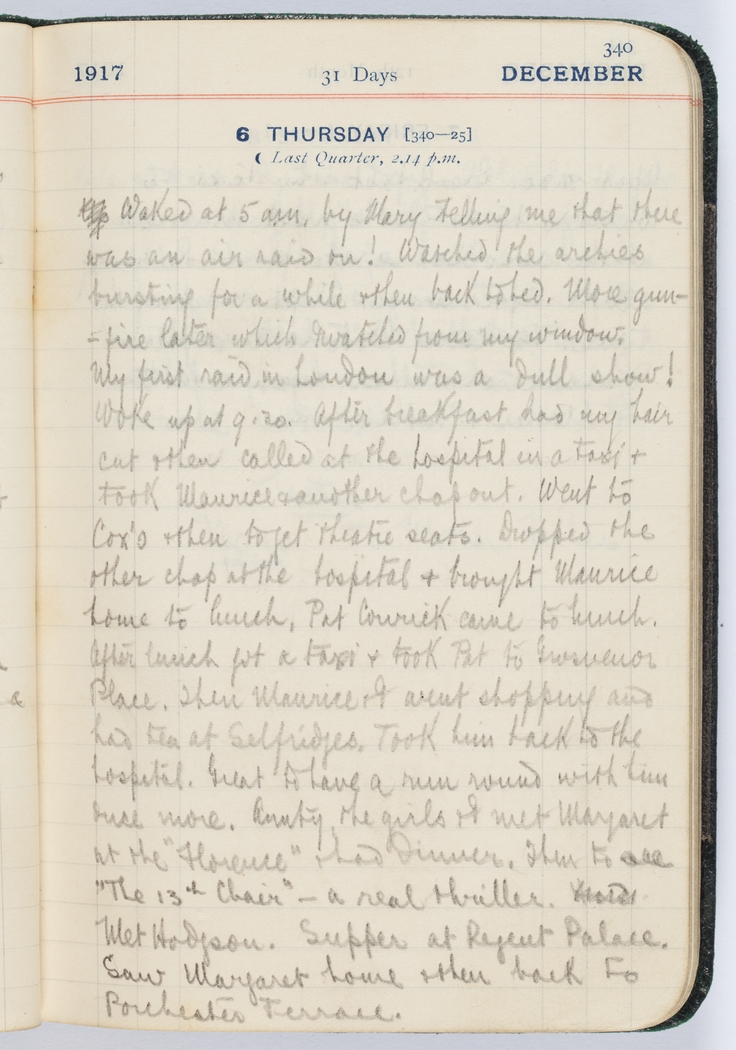 340
1917 31 Days DECEMBER
6 THURSDAY [340—25]
☾ Last Quarter, 2.14 p.m.
Waked at 5 am, by Mary telling me that there
was an air raid on! Watched the archies
bursting for a while & then back to bed. More gun-
-fire later which I watched from my window.
My first raid in London was a dull show!
Woke up at 9.30. After breakfast had my hair
cut & then called at the hospital in a taxi &
took Maurice & another chap out. Went to
Cox's & then to get theatre seats. Dropped the
other chap at the hospital & brought Maurice
home to lunch, Pat came to lunch.
After lunch got a taxi & took Pat to Grosvenor
Place. Then Maurice & I went shopping and
had tea at Selfridges. Took him back to the
hospital. Great to have a run round with him
once more. Aunty, the girls & I met Margaret
at the "Florence" & had Dinner. Then to see
"The 13th Chair" – a real thriller.
Met Hodgson. Supper at Regent Palace.
Saw Margaret home & then back to
Porchester Terrace.
a